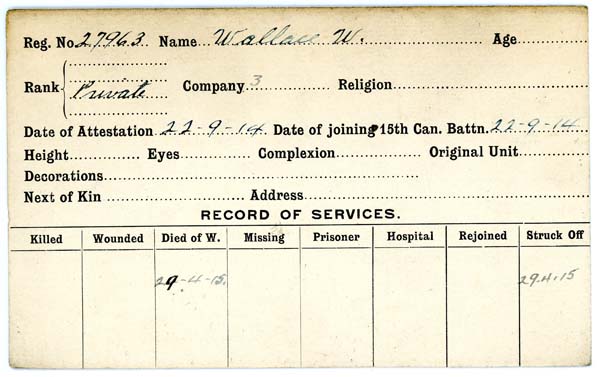 Reg. No. 27963 Name Wallace W. Age
Rank Private Company 3 Religion
Date of Attestation 22-9-14 Date of joining 15th Can. Battn. 22-9-14
Height Eyes Complexion Original Unit
Decorations
Next of Kin Address
RECORD OF SERVICES.
Killed Wounded Died of W. Missing Prisoner Hospital Rejoined Struck Off
29-4-15. 29.4.15